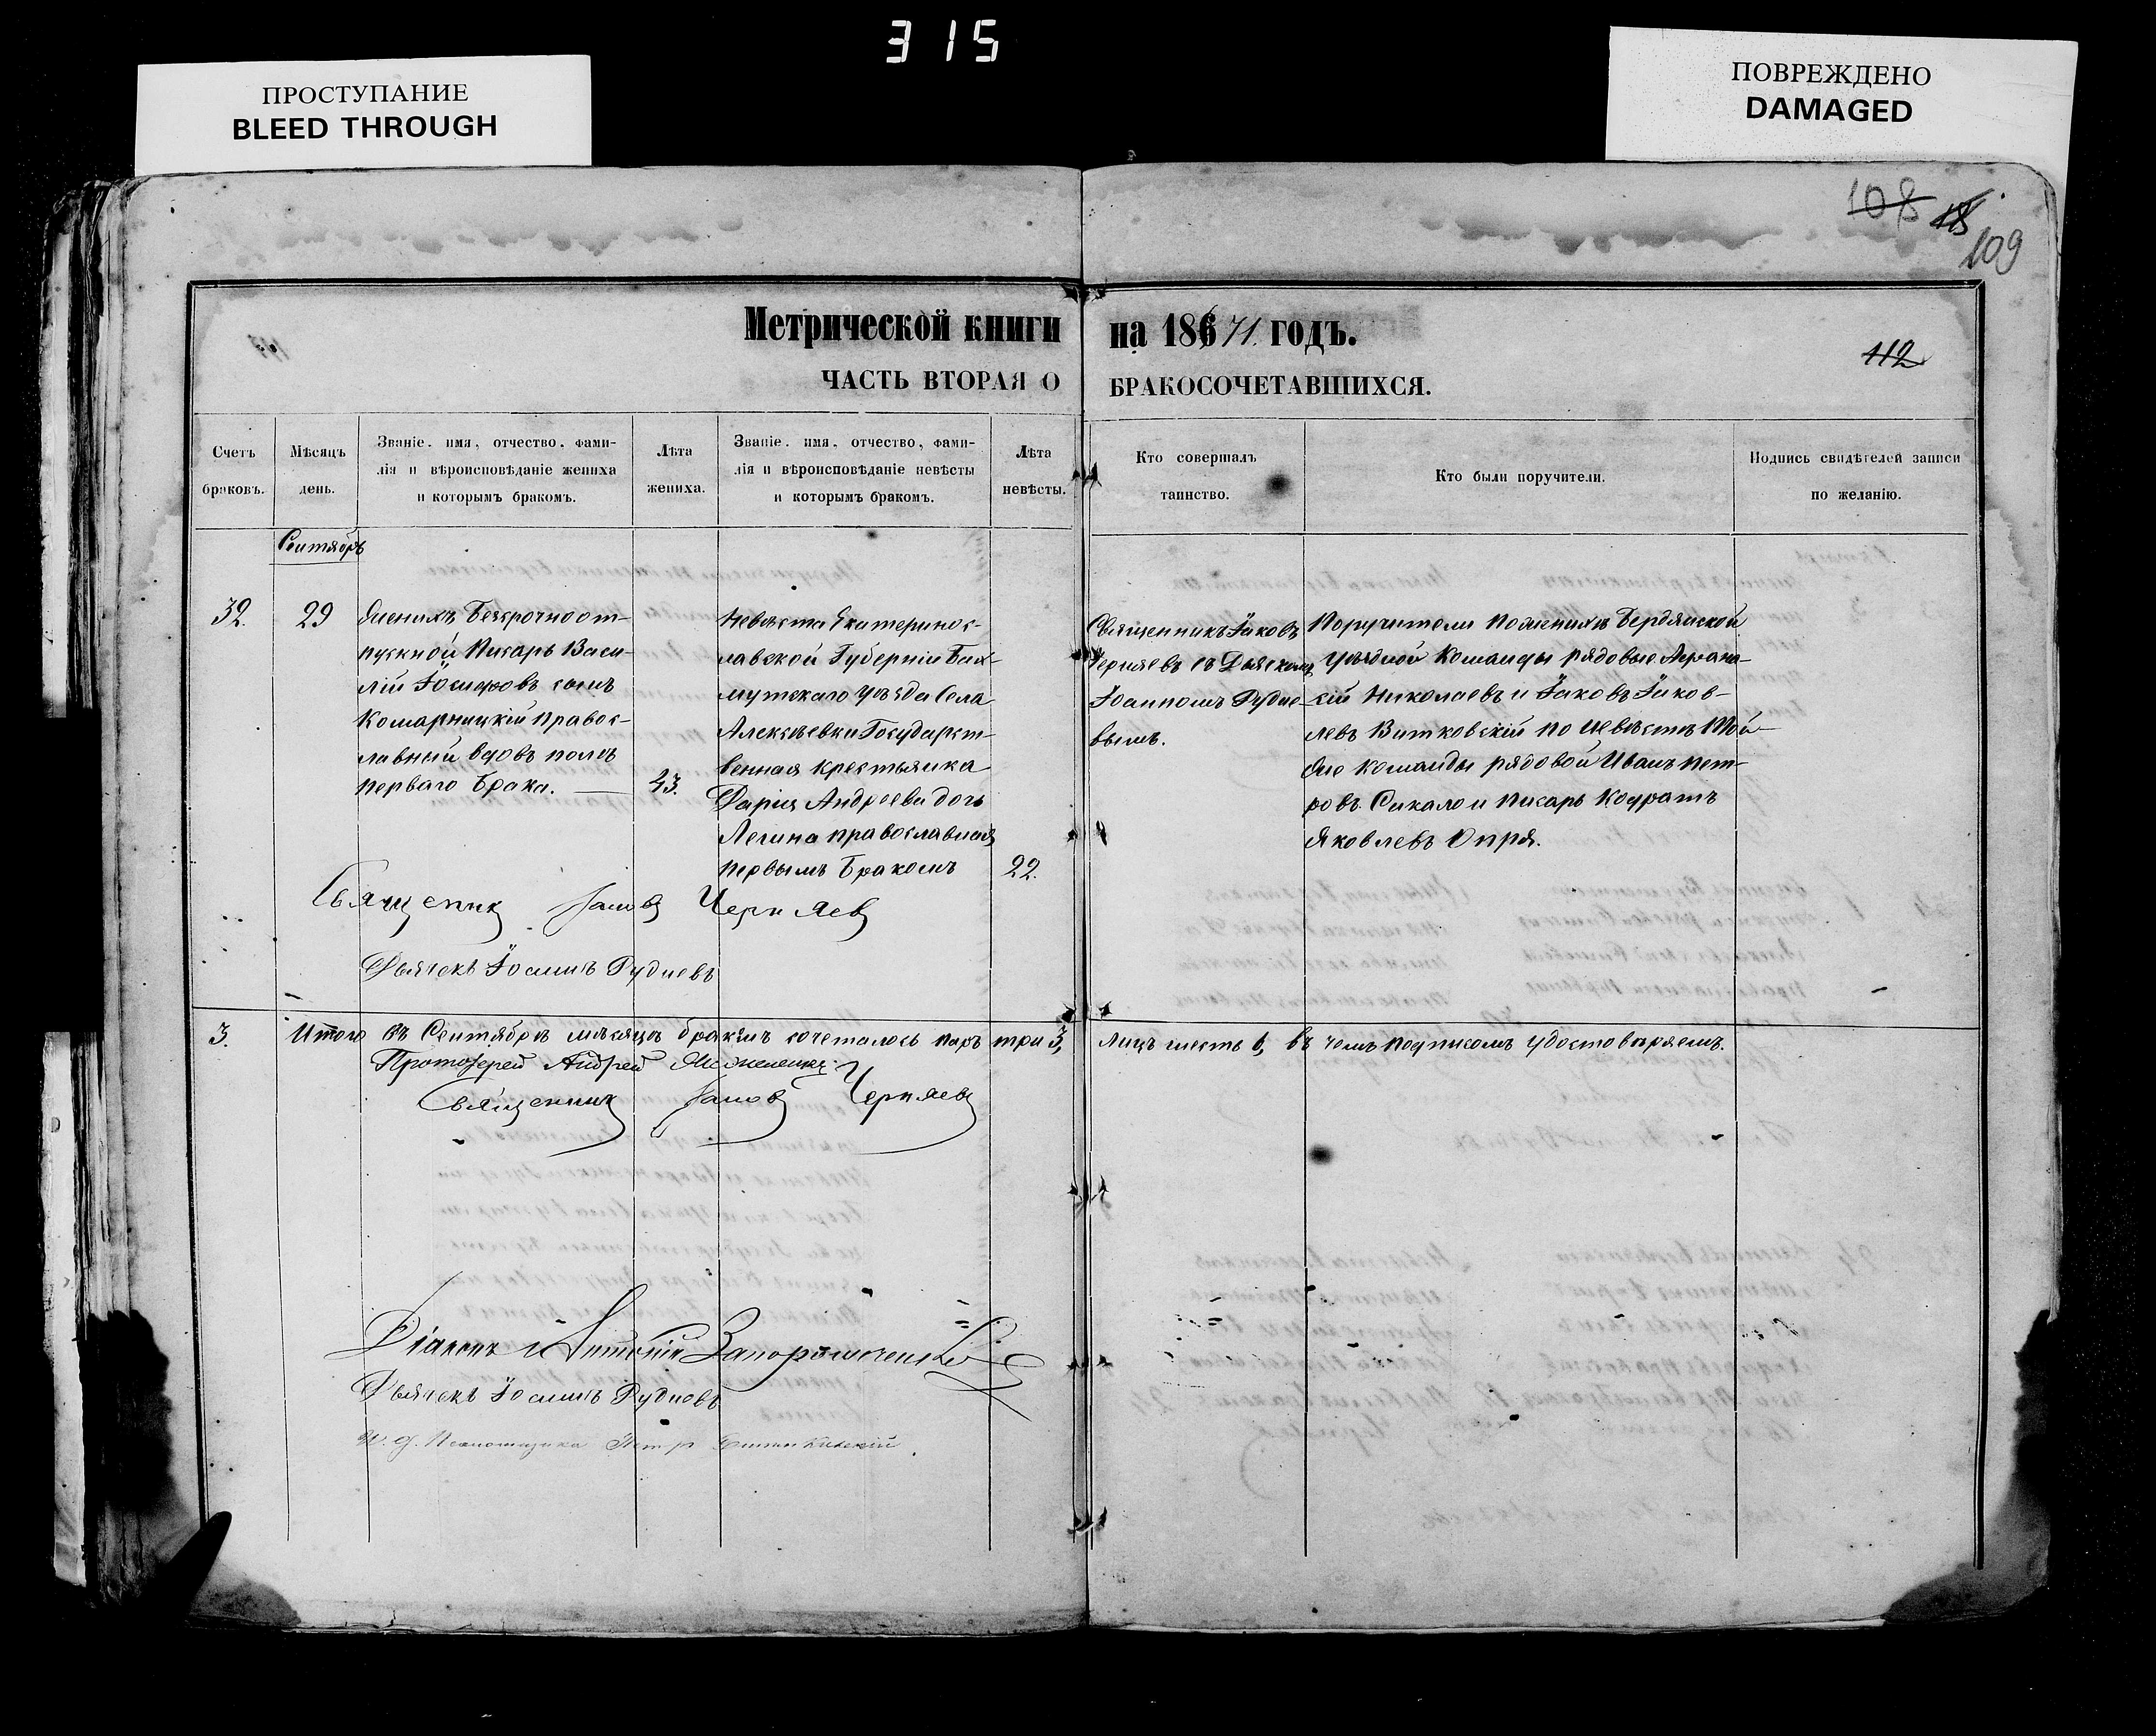 315
ПРОСТУПАНИЕ
BLEED THROUGH
ПОВРЕЖДЕНО
DAMAGED
108 18
109
Метрической книги на 18671. годъ.
112
ЧАСТЬ ВТОРАЯ О БРАКОСОЧЕТАВШИХСЯ.
Счетъ
браковъ.
Мѣсяцъ
день.
Званіе, имя, отчество, фами-
лія и вѣроисповѣданіе жениха
и которымъ бракомъ.
Лѣта
жениха.
Званіе, имя, отчество, фами-
лія и вѣроисповѣданіе невѣсты
и которымъ бракомъ.
Лѣта
невѣсты.
Кто совершалъ
таинство.
Кто были поручители.
Подпись свидѣтелей записи
по желанію.
Сентябрь
32.
29
Женихъ Безсрочноот-
пускной Писарь Васи-
лій Іосифовъ сынъ
Комарницкій правос-
лавный вдовъ послѣ
перваго брака.
43.
Невѣста Екатеринос-
лавской Губерніи Бах-
мутскаго уѣзда Села
Алексѣевки Государст-
венная крестьянка
Дарія Андреева дочь
Легина православная
первымъ бракомъ
22.
Священникъ Іаковъ
Черняевъ съ Дьячкомъ
Іоанномъ Рудне-
вымъ.
Поручители по женихѣ Бердянской
уѣздной Команды рядовые Афана-
сій Николаевъ и Іаковъ Іаков-
левъ Витковскій по невѣстѣ той-
же команды рядовой Иванъ Пет-
ровъ Сикало и писарь Кодратъ
Яковлевъ Опря.
Священникъ Іаковъ Черняевъ
Дьячекъ Іоаннъ Рудневъ
3.
Итого въ Сентябрѣ мѣсяцѣ бракомъ сочеталось паръ три 3, лицъ шесть 6, въ чемъ подписомъ удостовѣряемъ.
Протоіерей Андрей
Священникъ Іаковъ Черняевъ
Діаконъ Антоній Запорожченко
Дьячекъ Іоаннъ Рудневъ
И. д. Псаломщика Петръ